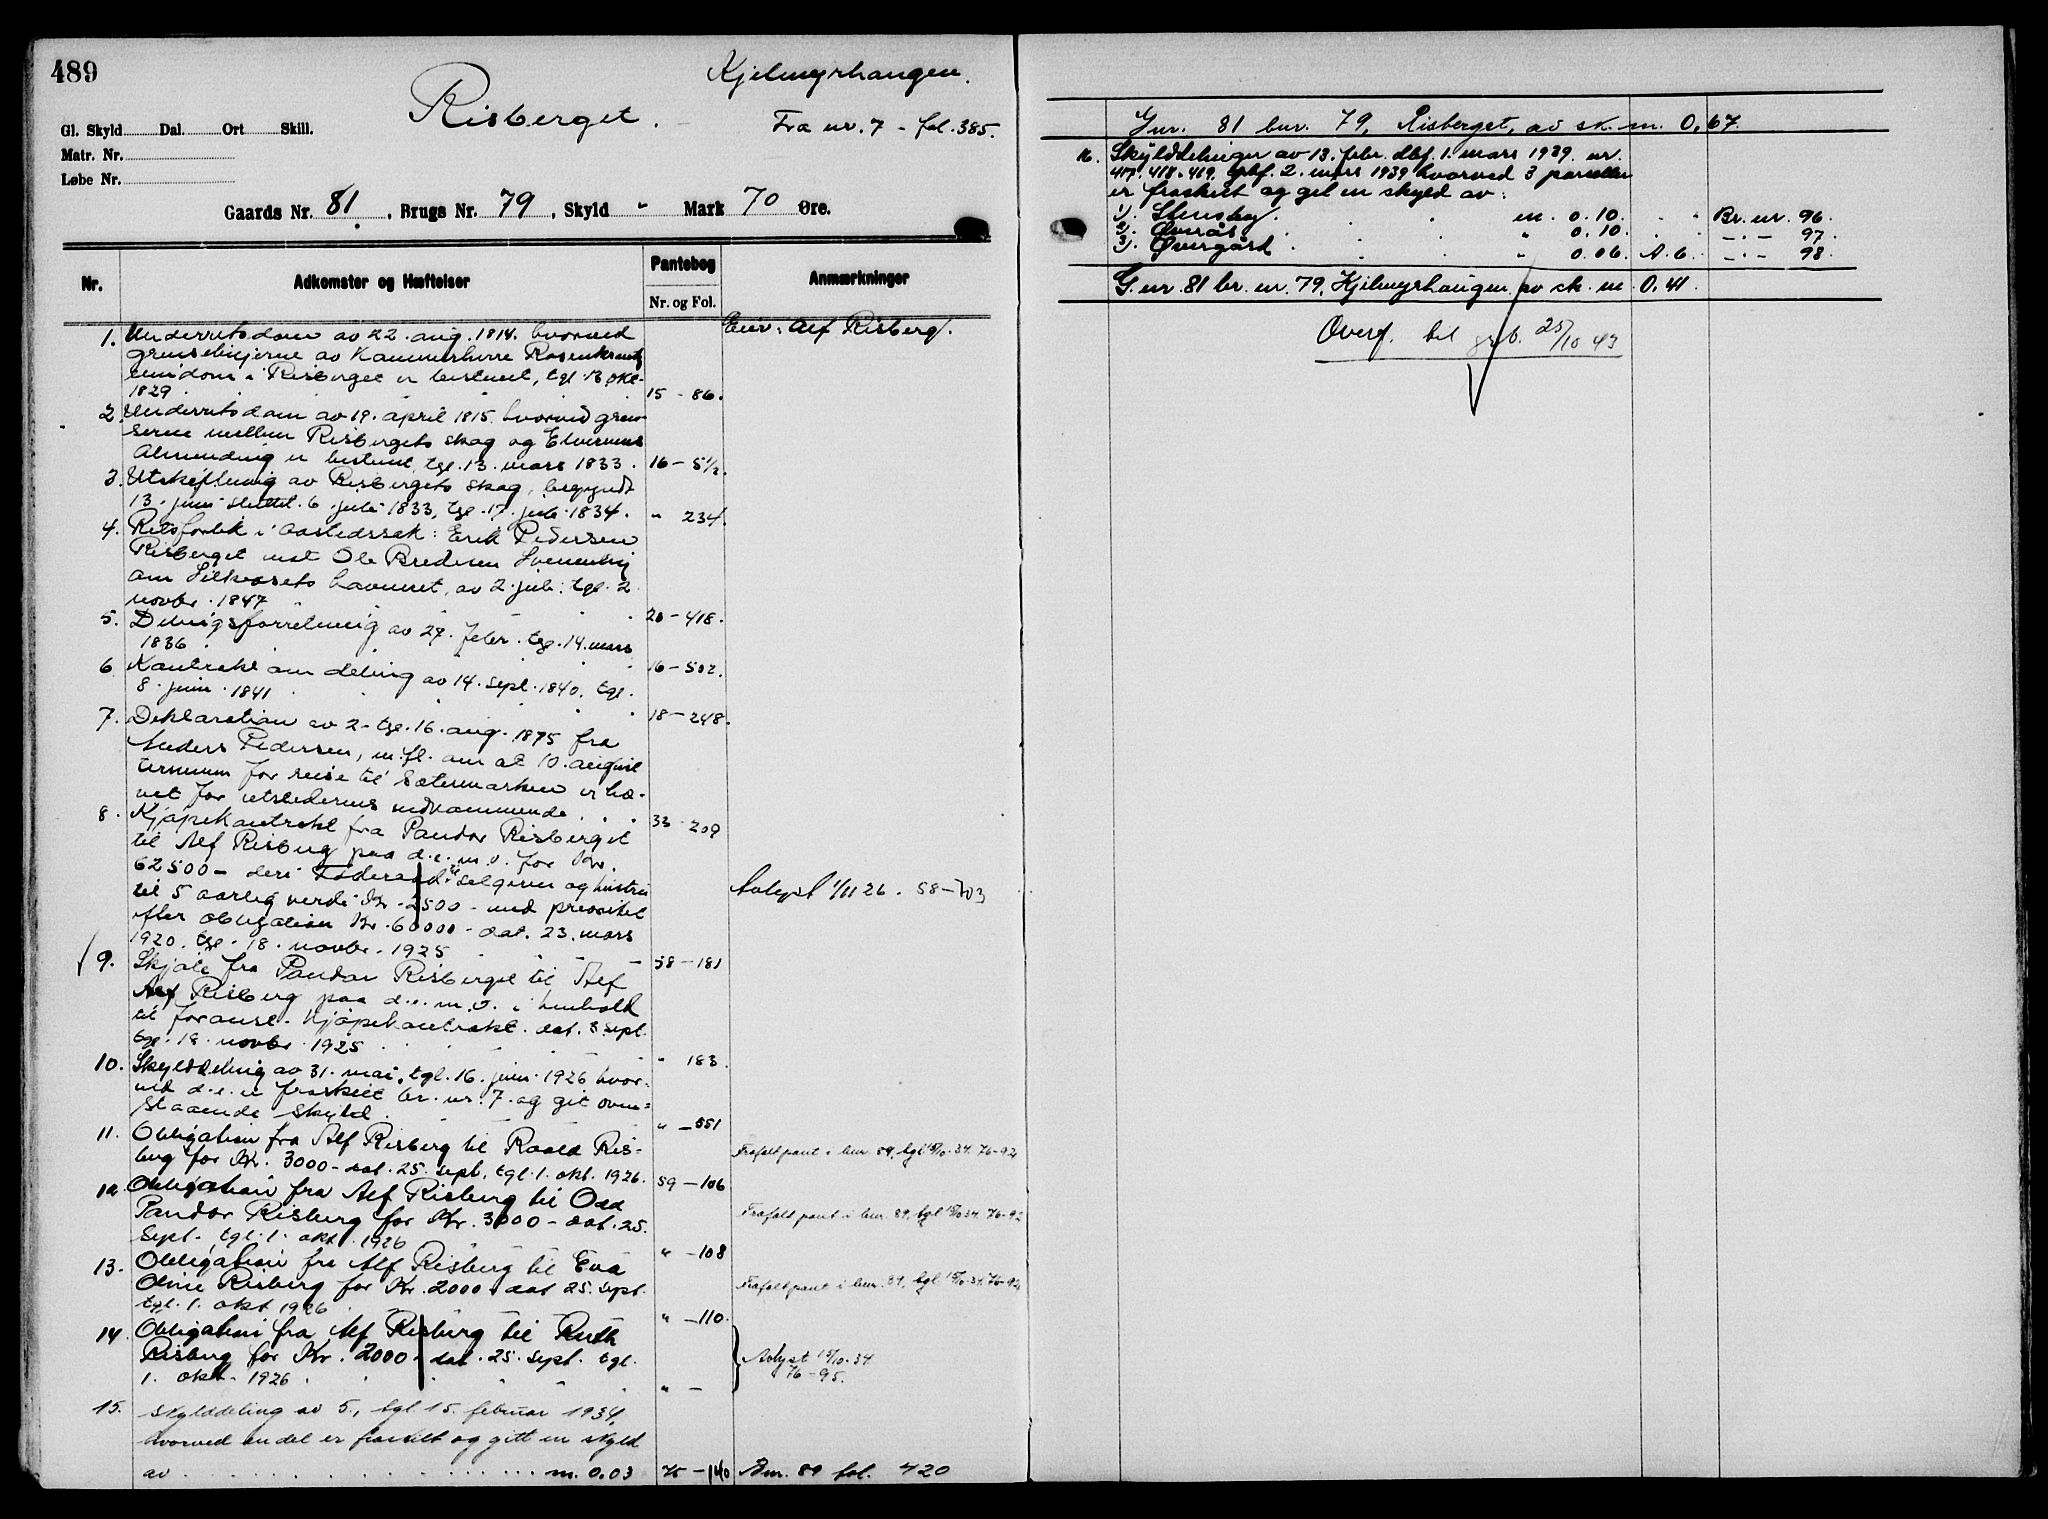 489
Risberget.
Kjelmyrhaugen.
Fra nr. 7 - fol. 385.
Gl. Skyld Dal. Ort Skill.
Matr. Nr.
Løbe Nr.
Gaards Nr. 81, Brugs Nr. 79, Skyld " Mark 70 Øre.
Nr. Adkomster og Hæftelser Pantebog Anmærkninger
Nr. og Fol.
1. Underretsdom av 22. aug. 1814. hvorved Eier: Alf Risberg.
grenselinjerne av Kammerherre Rosenkrantz
eiendom i Risberget er bestemt, tgl. 13. okt.
1829 15 - 86.
2. Underretsdom av 19. april 1815. hvorved gren-
serne mellem Risbergets skog og Elverums
Almending er bestemt, tgl. 13. mars 1833. 16 - 5 1/2.
3. Utskiftning av Risbergets skog, begyndt
13. juni sluttet 6. juli 1833, tgl. 17. juli 1834. " 234.
4. Retsforlik i aastedssak: Erik Pedersen
Risberget mot Ole Bredesen
om havneret, av 2. juli. tgl. 2.
novbr. 1847 20 - 418.
5. Delingsforretning av 27. febr. tgl. 14. mars
1836 16 - 502.
6. Kontrakt om deling av 14. sept. 1840, tgl.
8. juni 1841 18 - 248.
7. Deklaration av 2 - tgl. 16. aug. 1875 fra
Anders Pedersen, m. fl. om at 10. august
termin for reise til Sætermarken er hæ-
vet for utstedernes vedkommende 33 - 209
8. Kjøpekontrakt fra Pandor Risberget
til Alf Risberg paa d. e. m. v. for Kr.
62500 - deri Føderaad til selgeren og hustru
til 5 aarlig verdi Kr. 2500 - med prioritet Avlyst 1/11 26. 58 - 703
efter obligation Kr. 60000 - dat. 23. mars
1920. tgl. 18. novbr. 1925 58 - 181
9. Skjøte fra Pandor Risberget til Alf
Alf Risberg paa d. e. m. v. i henhold
til foranst. Kjøpekontrakt. dat. 3 sept.
tgl. 18. novbr. 1925 " 183.
10. Skylddeling av 31. mai, tgl. 16. juni 1926 hvor-
ved d. e. er fraskilt br. nr. 7. og git oven-
staaende skyld " - 551
11. Obligation fra Alf Risberg til Roald Ris-
berg for Kr. 3000 - dat. 25. sept. tgl. 1. okt. 1926. 59 - 106 Frafalt pant i bnr. 89, tgl 15/10.34. 76-92
12. Obligation fra Alf Risberg til Odd
Pandor Risberg for Kr. 3000 - dat. 25. Frafalt pant i bnr. 89, tgl 15/10 34. 76-92
sept. tgl. 1. okt. 1926 " - 108
13. Obligation fra Alf Risberg til Eva
Oline Risberg for Kr. 2000 dat 25. sept. Frafalt pant i bnr. 89, tgl 15/10.34. 76-92
tgl. 1. okt 1926 " - 110.
14. Obligation fra Alf Risberg til Ruth
Risberg for Kr. 2000 - dat. 25. sept. tgl. Avlyst 15/10.34
1. okt. 1926 " - 76 - 95.
15. Skylddeling av 5., tgl 15. februar 1934,
hvorved en del er fraskilt og gitt en skyld
av m. 0.03 75 - 140 Bnr. 89 fol. 420
Gnr. 81 bnr. 79, Risberget, av sk. m. 0.67.
16. Skylddelinger av 13. febr. dbf. 1. mars 1939. nr.
417. 418. 419. tgbf. 2. mars 1939 hvorved 3 parseller
er fraskilt og git en skyld av:
1). Stensby. m. 0.10. Br. nr. 96.
2). Øverås " 0.10. - " - 97.
3). Øvergård " 0.06. A. 6. - " - 98.
G. nr. 81 br. nr. 79, Kjelmyrhaugen av sk. m. 0.41.
Overf. til grb. 25/10 43